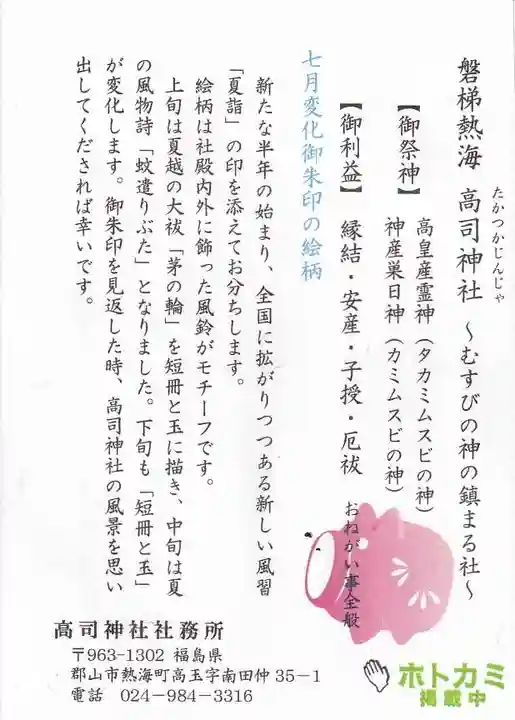 磐梯熱海 高司神社 ～むすびの神の鎮まる社～
たかつかじんじゃ
【御祭神】 高皇産霊神（タカミムスビの神）
神産巣日神（カミムスビの神）
【御利益】 縁結・安産・子授・厄祓 おねがい事全般
七月変化御朱印の絵柄
新たな半年の始まり、全国に拡がりつつある新しい風習
「夏詣」の印を添えてお分ちします。
絵柄は社殿内外に飾った風鈴がモチーフです。
上旬は夏越の大祓「茅の輪」を短冊と玉に描き、中旬は夏
の風物詩「蚊遣りぶた」となりました。下旬も「短冊と玉」
が変化します。御朱印を見返した時、高司神社の風景を思い
出してくだされば幸いです。
高司神社社務所
〒963-1302 福島県
郡山市熱海町高玉字南田仲35－1
電話 024-984-3316
ホトカミ
掲載中